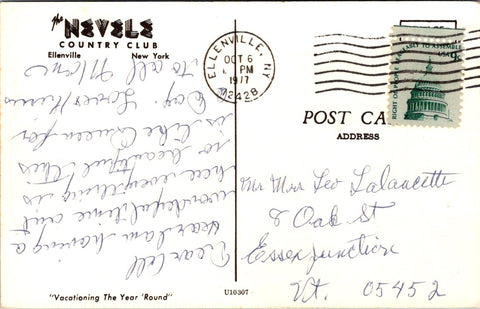 The NEVELE
COUNTRY CLUB
Ellenville New York
Dear all
dear am having a
wonderful time out
here everything is
so beautiful this
is like Queen for
Day Love
to all Mom
"Vacationing The Year 'Round"
U10307
ELLENVILLE, NY
OCT 6
PM
1977
12428
RIGHT OF PEOPLE PEACEABLY TO ASSEMBLE
USA 9c
POST CA
ADDRESS
Mr Mrs Leo Lalancette
8 Oak St
Essex junction
Vt. 05452